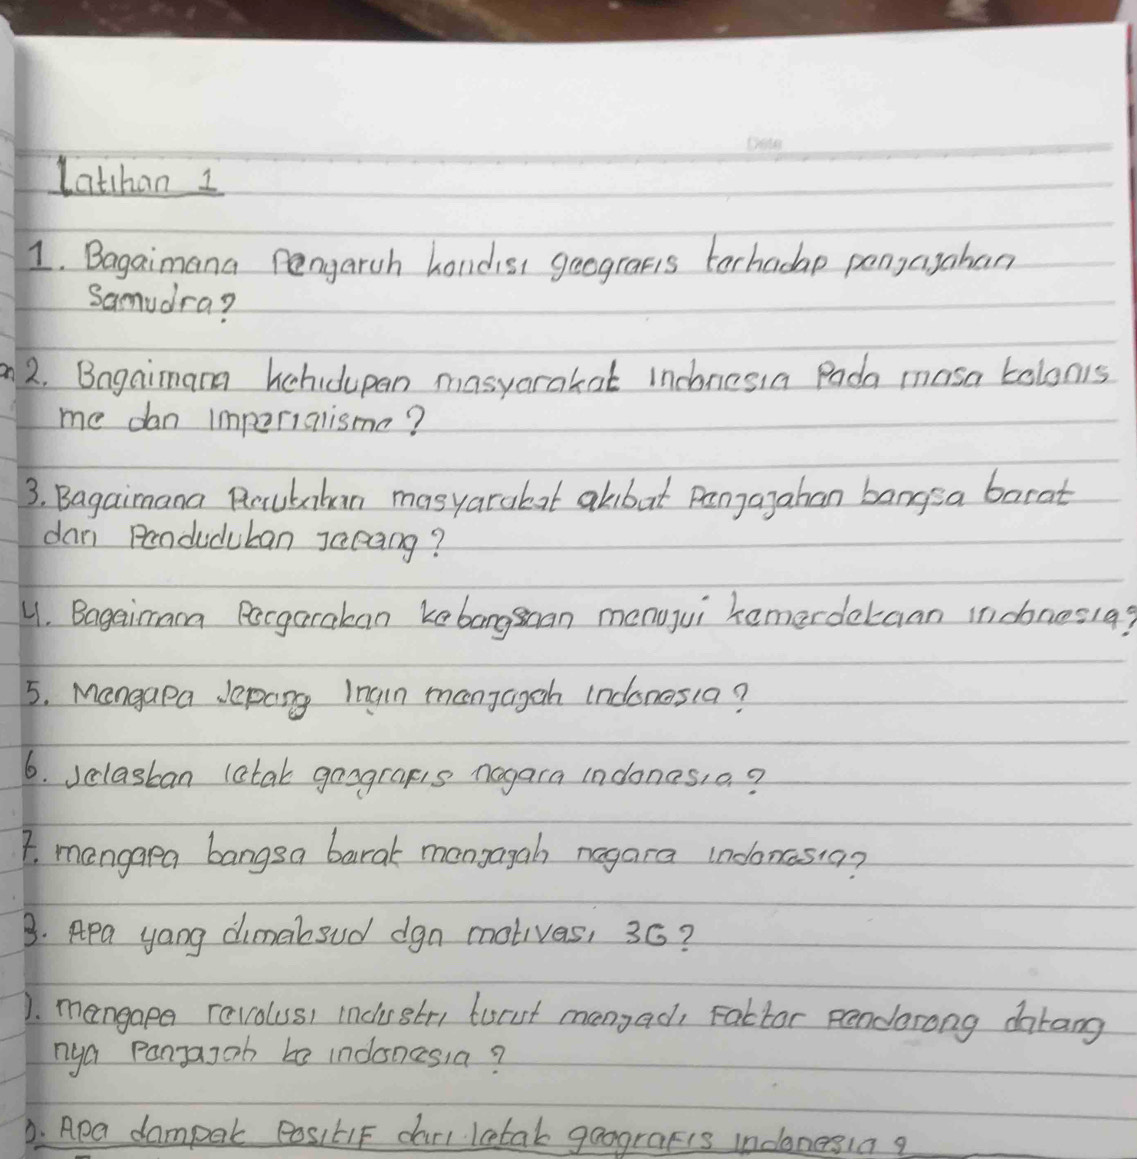 Date
Latihan 1
1. Bagaimana Pengaruh kondisi geografis terhadap penjajahan
Samudra?
2. Bagaimana kehidupan masyarakat indonesia Pada masa kolonis
me dan imperialisme?
3. Bagaimana Perubahan masyarakat akibat Penjajahan bangsa barat
dan Pendudukan Jepang?
4. Bagaimana Pergerakan kebangsaan menujui kemerdekaan indonesia?
5. Mengapa Jepang Ingin menjajah indonesia?
6. Jelaskan letak geografis negara indonesia?
7. mengapa bangsa barat menjajah negara indonesia?
8. Apa yang dimaksud dgn motivasi 3G?
9. mengapa revolusi industri turut menjadi Faktor Pendorong datang
nya Penjajah ke indonesia?
0. Apa dampak Positif dari letak geografis indonesia?